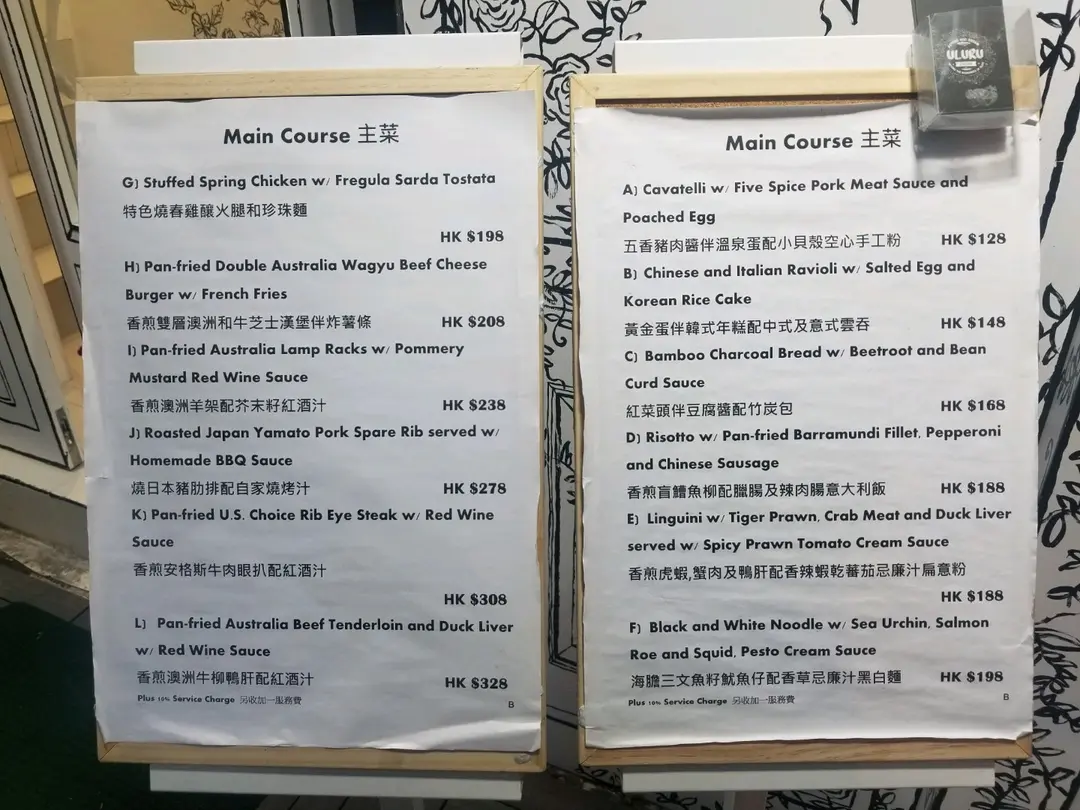 Main Course 主菜
G) Stuffed Spring Chicken w/ Fregula Sarda Tostata
特色燒春雞釀火腿和珍珠麵
HK $198
H) Pan-fried Double Australia Wagyu Beef Cheese
Burger w/ French Fries
香煎雙層澳洲和牛芝士漢堡伴炸薯條 HK $208
I) Pan-fried Australia Lamp Racks w/ Pommery
Mustard Red Wine Sauce
香煎澳洲羊架配芥末籽紅酒汁 HK $238
J) Roasted Japan Yamato Pork Spare Rib served w/
Homemade BBQ Sauce
燒日本豬肋排配自家燒烤汁 HK $278
K) Pan-fried U.S. Choice Rib Eye Steak w/ Red Wine
Sauce
香煎安格斯牛肉眼扒配紅酒汁
HK $308
L) Pan-fried Australia Beef Tenderloin and Duck Liver
w/ Red Wine Sauce
香煎澳洲牛柳鴨肝配紅酒汁 HK $328
Plus 10% Service Charge 另收加一服務費 B
ULURU
Main Course 主菜
A) Cavatelli w/ Five Spice Pork Meat Sauce and
Poached Egg
五香豬肉醬伴溫泉蛋配小貝殼空心手工粉 HK $128
B) Chinese and Italian Ravioli w/ Salted Egg and
Korean Rice Cake
黃金蛋伴韓式年糕配中式及意式雲吞 HK $148
C) Bamboo Charcoal Bread w/ Beetroot and Bean
Curd Sauce
紅菜頭伴豆腐醬配竹炭包 HK $168
D) Risotto w/ Pan-fried Barramundi Fillet, Pepperoni
and Chinese Sausage
香煎盲鰽魚柳配臘腸及辣肉腸意大利飯 HK $188
E) Linguini w/ Tiger Prawn, Crab Meat and Duck Liver
served w/ Spicy Prawn Tomato Cream Sauce
香煎虎蝦,蟹肉及鴨肝配香辣蝦乾蕃茄忌廉汁扁意粉
HK $188
F) Black and White Noodle w/ Sea Urchin, Salmon
Roe and Squid, Pesto Cream Sauce
海膽三文魚籽魷魚仔配香草忌廉汁黑白麵 HK $198
Plus 10% Service Charge 另收加一服務費 B